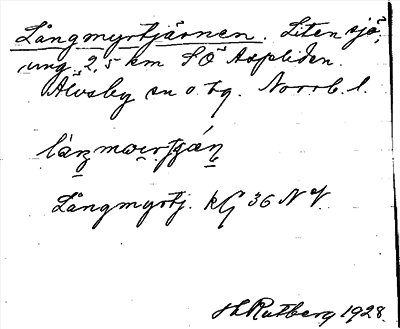 Långmyrtjärnen. Liten sjö,
ung. 2,5 km SÖ Aspliden.
Älvsby sn o. tg. Norrb. l.
Långmyrtj. kG 36 NV.
H. Rutberg 1928.